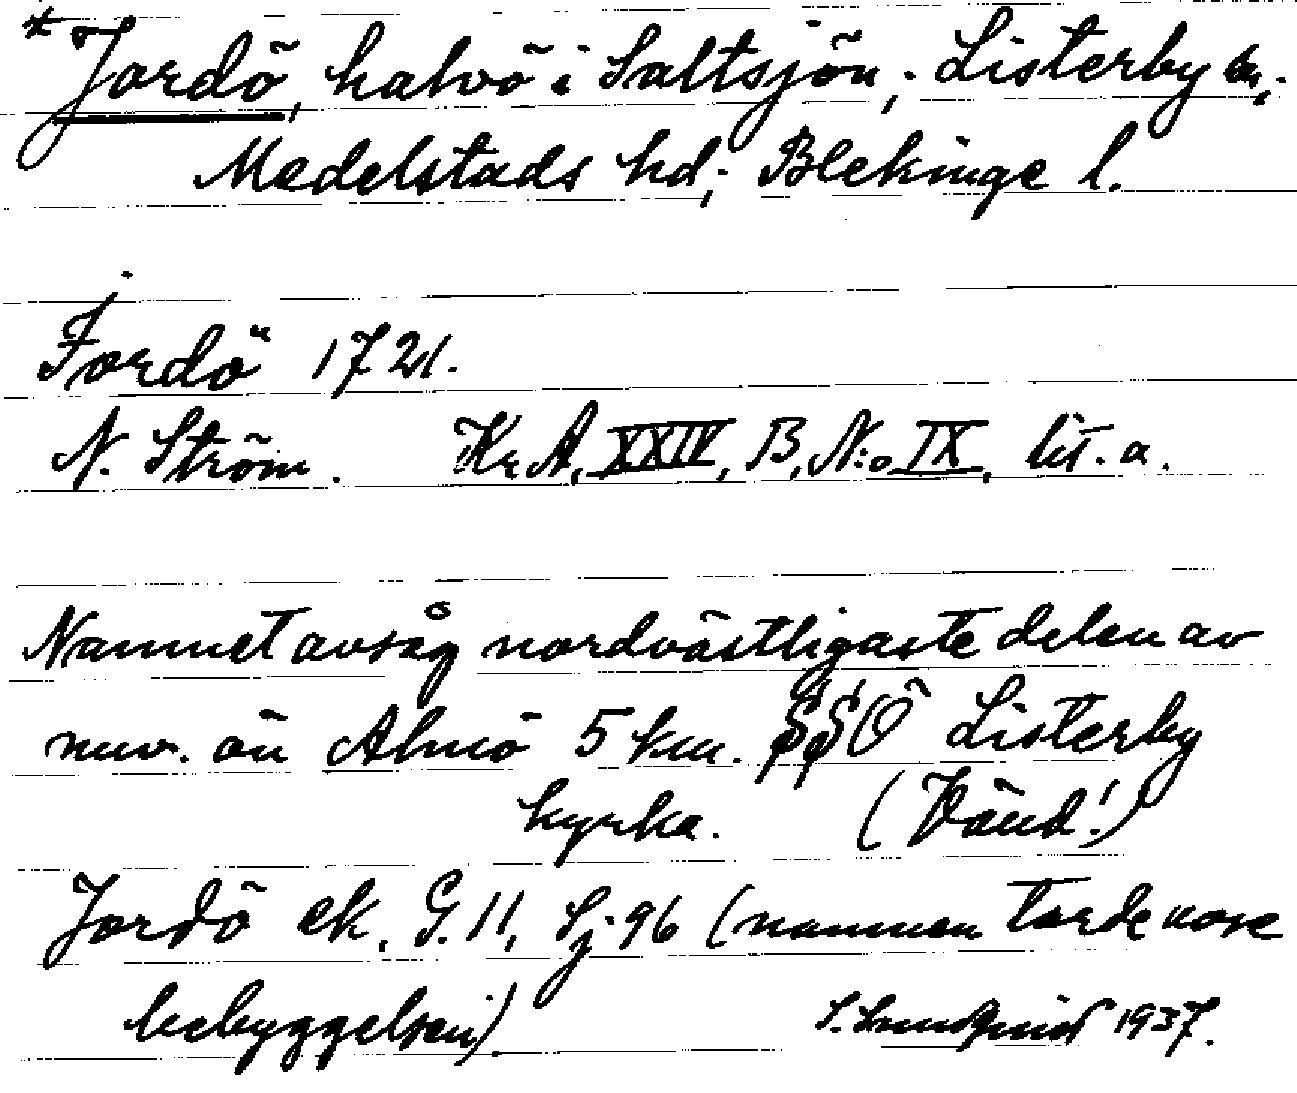 * Jordö, halvö i Saltsjön; Listerby sn;
Medelstads hd; Blekinge l.
Jordö 1721.
N. Ström. KrA, XXIV, B, N:o IX, lit. a.
Namnet avsåg nordvästligaste delen av
nuv. ön Almö 5 km. SSO Listerby
kyrka. (Vänd!)
Jordö ek. G. 11, Sj 96 (namnen torde avse
bebyggelsen) S. Lundqvist 1937.